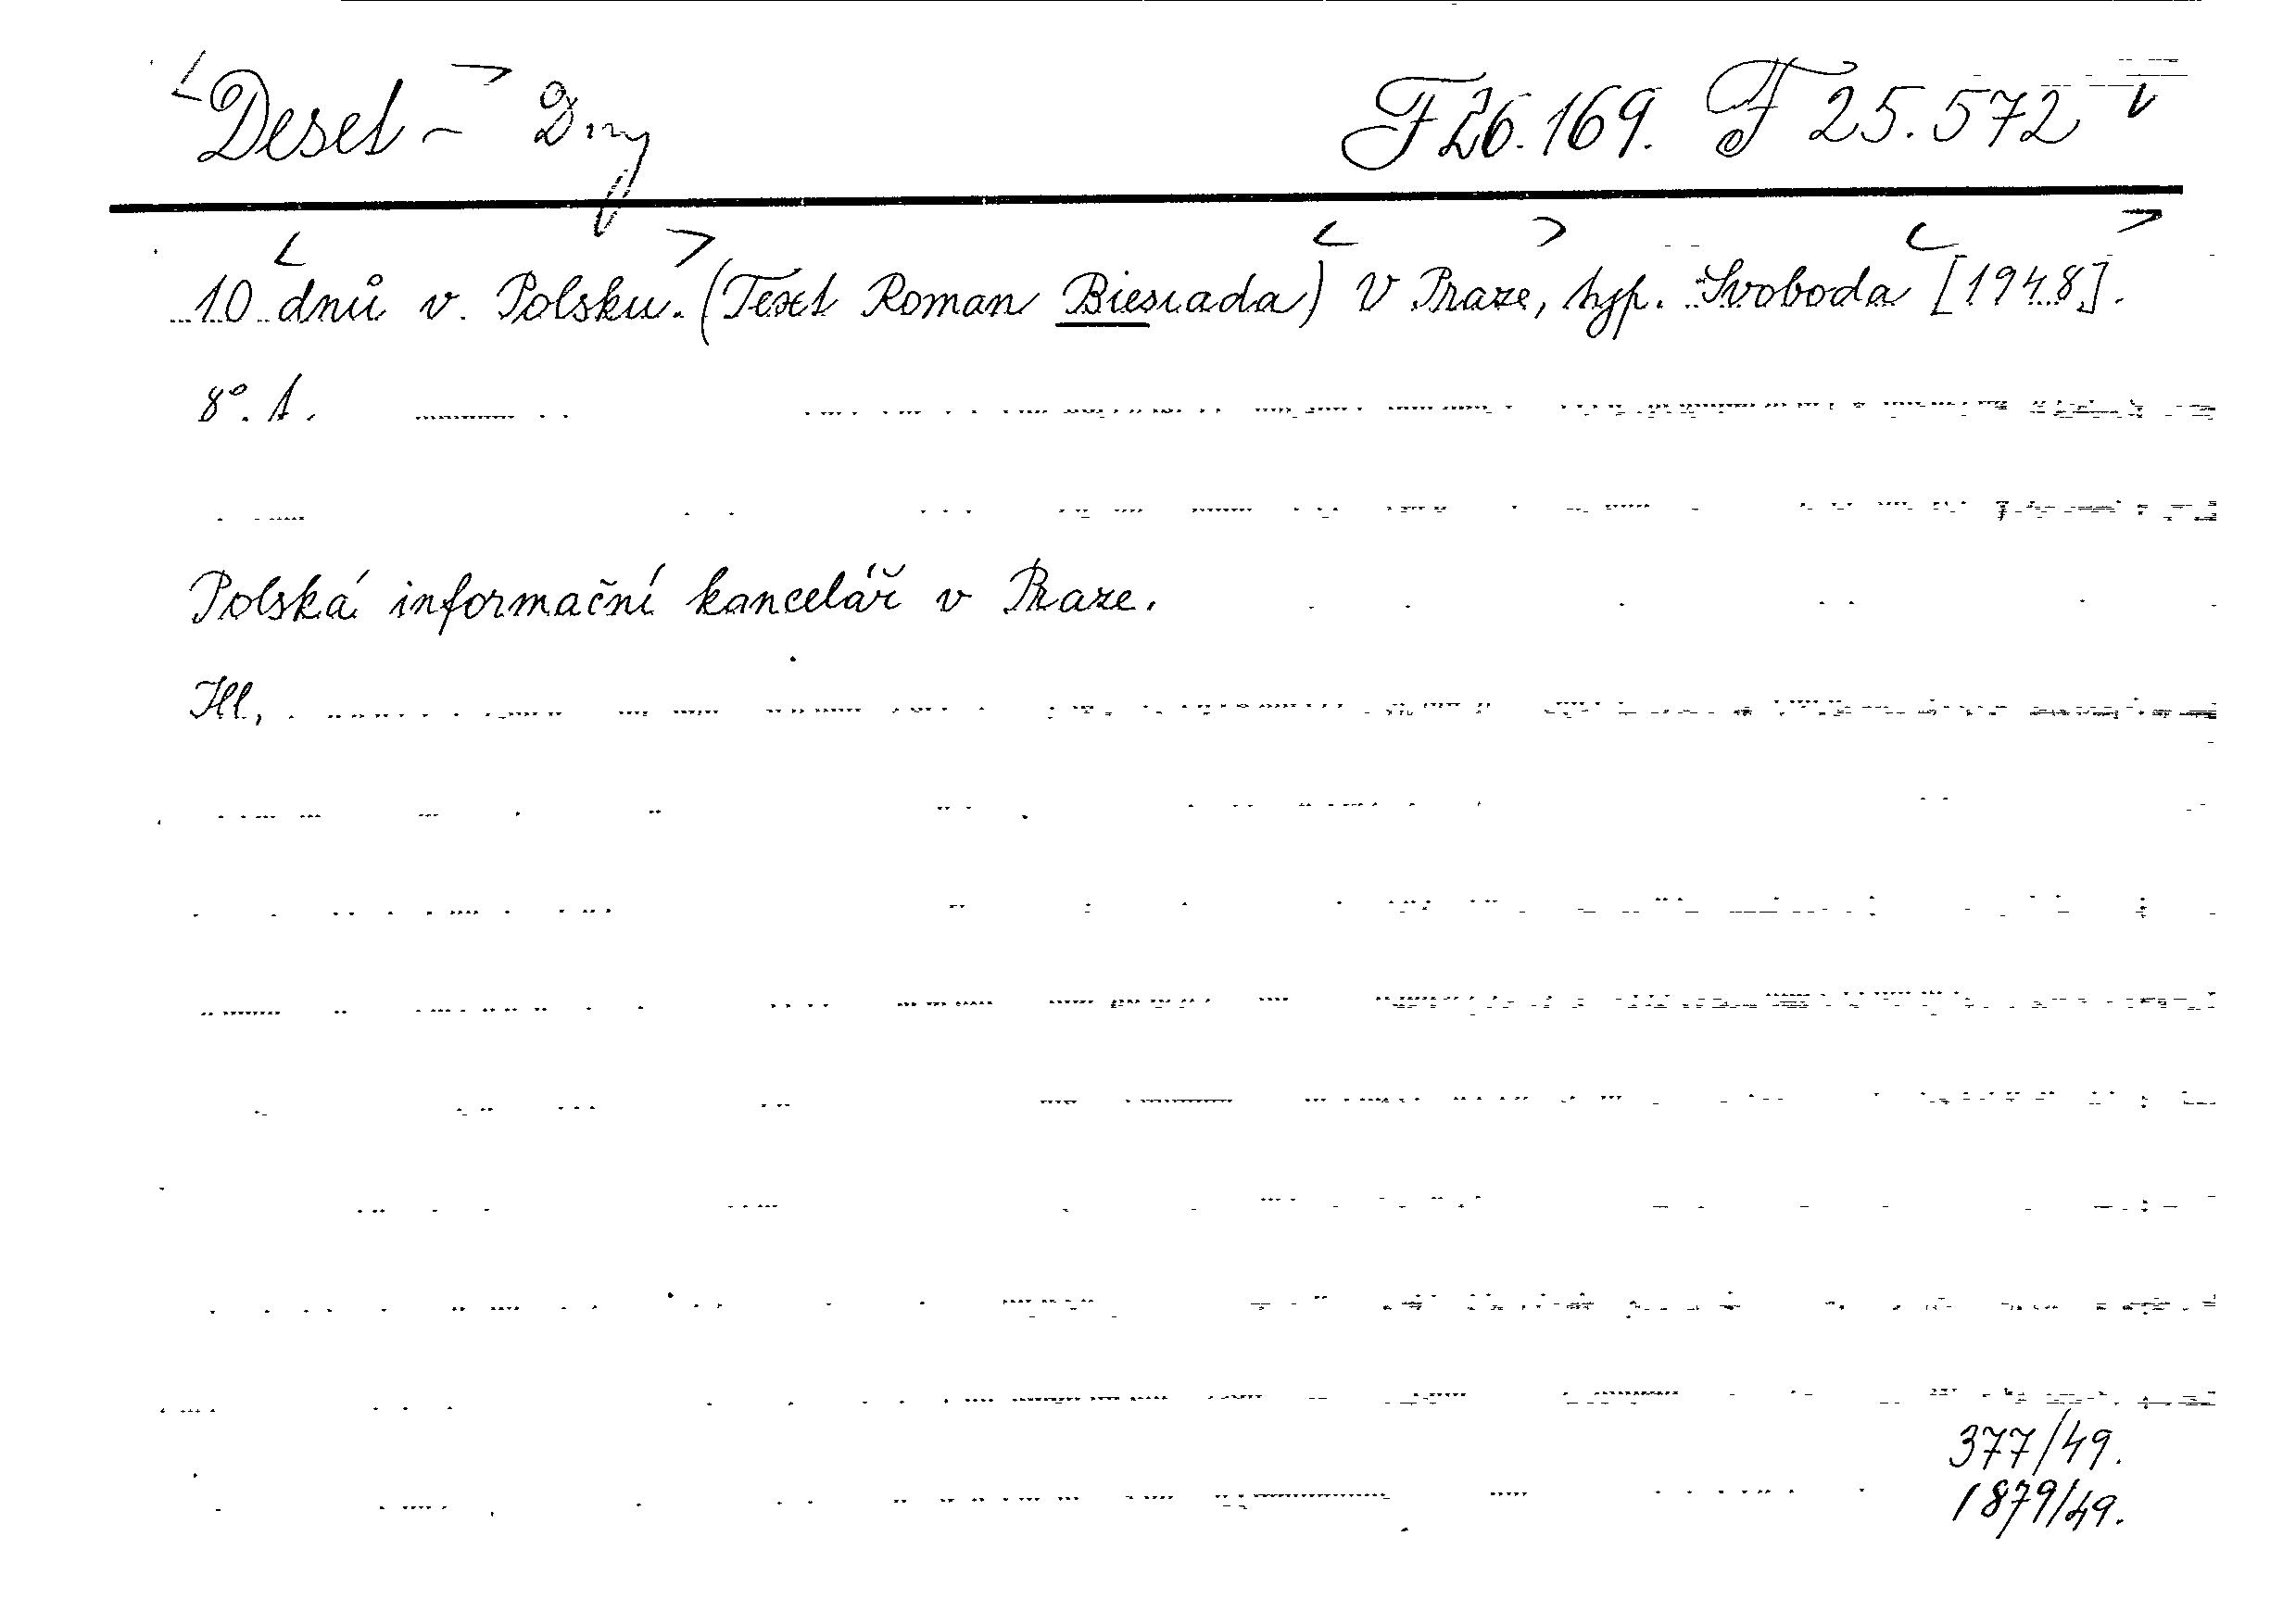 Deset - Dny F 26.169. F 25.572
10 dnů v Polsku. (Text Roman Biesiada) V Praze, typ. Svoboda [1948].
8°. 1.
Polská informační kancelář v Praze.
Ill.
377/49.
1879/49.